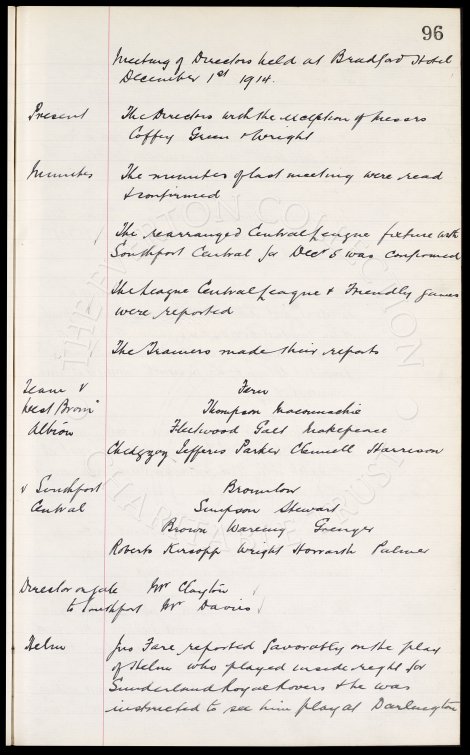 96
Meeting of Directors held at Bradford Hotel
December 1st 1914.
Present The Directors with the exception of Messrs
Coffey Green & Wright
Minutes The minutes of last meeting were read
& confirmed
The rearranged Central League fixture with
Southport Central for Decr 5 was confirmed
The League Central League & Friendly games
were reported
The Trainers made their reports
Team v Fern
West Brom Thompson Maconnachie
Albion Fleetwood Galt Makepeace
Chedgzoy Jefferis Parker Clennell Harrison
v Southport Bromilow
Central Simpson Stewart
Brown Wareing Grenyer
Roberts Kirsopp Wright Howarth Palmer
Director on gate Mr Clayton
to Southport Mr Davies
Helm Jno Fare reported favorably on the play
of Helm who played inside right for
Sunderland Royal Rovers & he was
instructed to see him play at Darlington
THE EVERTON COLLECTION
CHARITABLE TRUST